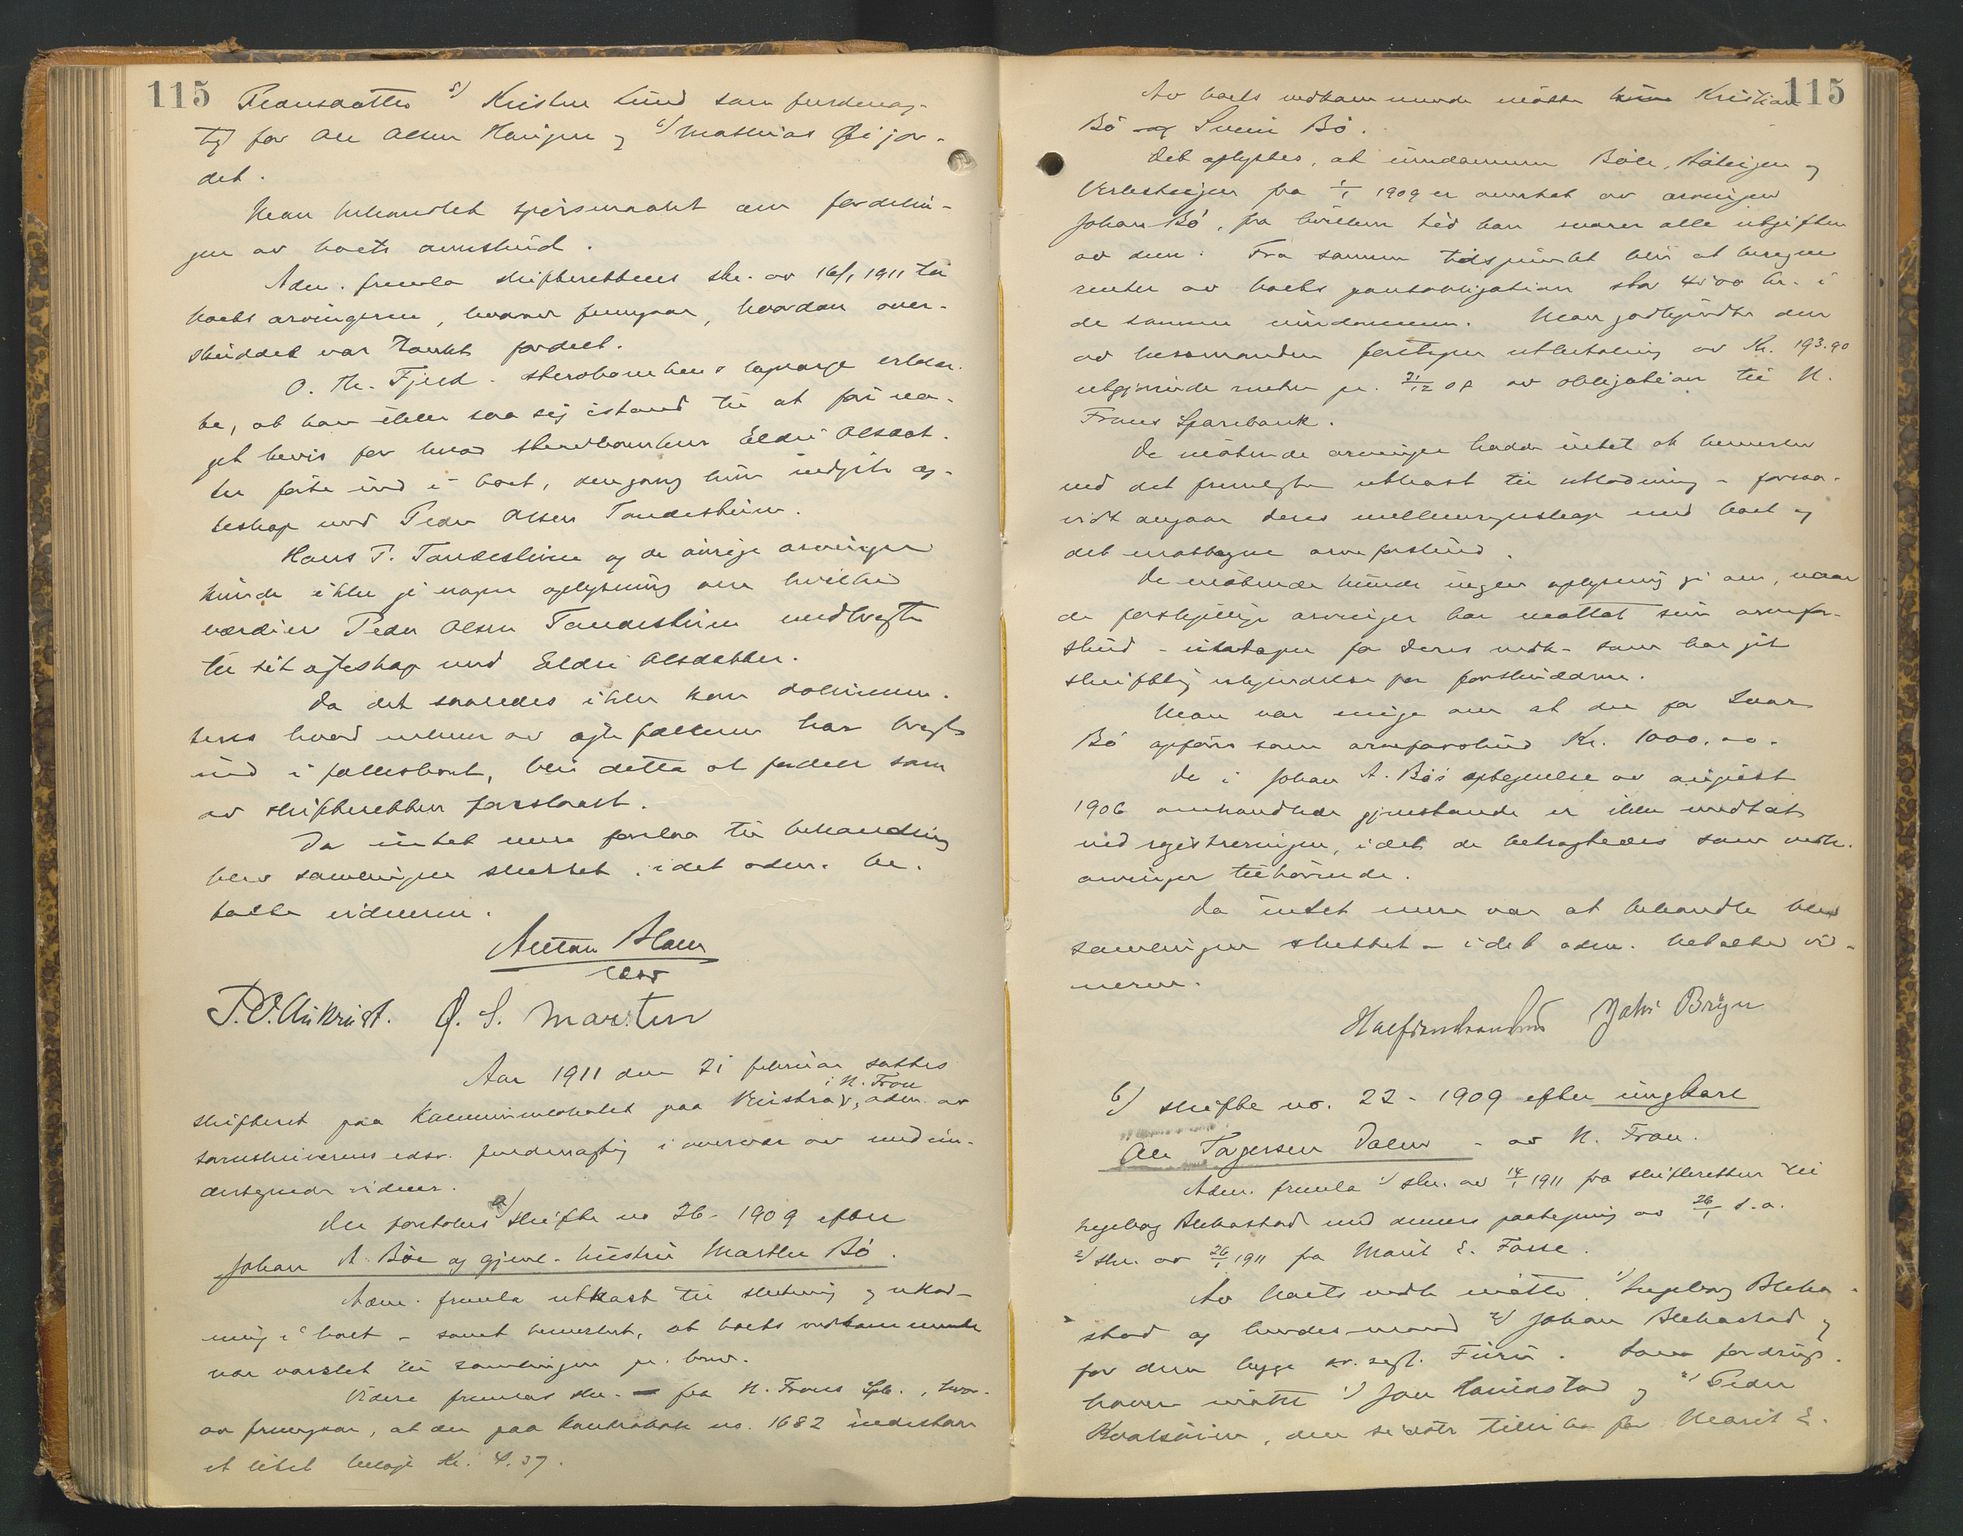 115
Pedersdatter 5) Kristen Lund som fuldmæg-
tig for Ole Olsen Haugen og 6) Mathias Øijor-
det.
Man behandlet spørsmaalet om fordelin-
gen av boets overskud.
Adm. fremla skifterettens skr. av 16/1 1911 til
boets arvingerne, hvorav fremgaar, hvordan over-
skuddet var tænkt fordelt.
O. Th. Fjeld. sterbboenkens lagværge erklær-
te, at han ikke saa sig istand til at føre no-
get bevis for hvad sterbboenken Eldri Olsdat-
ter førte ind i boet, dengang hun indgik eg-
teskap med Peder Olsen Tandeskim.
Hans P. Tandeskim og de øvrige arvinger
kunde ikke gi nogen oplysning om hvilke
værdier Peder Olsen Tandeskim medbragte
til sit egteskap med Eldri Olsdatter.
Da det saaledes ikke kan dokumen-
teres hvad enhver av egtefællerne har bragt
ind i fællesboet, blir dette at fordele som
av skifteretten foreslaaet.
Da intet mere forelaa til behandling
blev samlingen sluttet, idet adm. be-
talte vidnerne.
Anton
edsv
P. O. Aukrust. O. S. Marstein
Aar 1911 den 21 februar sattes
i N. Fron
skifteret paa Kommunelokalet paa Vinstra, adm. av
sorenskriverens edsv. fuldmægtig i overvær av med un-
dertegnede vidner.
Der foretokes a) skifte no 26 - 1909 efter
Johan A. Bøe og gjenl. hustru Marthe Bø.
Adm. fremla utkast til slutning og utlod-
ning i boet - samt bemerket, at boets vedkommende
var varslet til samlingen pr. brev.
Videre fremlas skr. fra N. Frons Spb., hvor-
av fremgaar, at der paa kontrabok no. 1682 indestaar
et litet beløp Kr. 4.37.
115
Av boets vedkommende møtte Kristian
Bø og Svein Bø.
Det oplystes, at eiendommen Bøle, Aaleigen og
fra 1/1 1909 er overtat av arvingen
Johan Bø, fra hvilken tid han svarer alle utgifter
av dem. Fra samme tidspunkt blir at beregne
renter av boets pantobligation stor 4500 kr. i
de samme eiendommer. Man godkjendte den
av bersmanden foretagne utbetaling av Kr. 193.90
utgjørende renter pr. 31/12 08 av obligation til N.
Frons Sparebank.
De møtende arvinger hadde intet at bemerke
ved det fremlagte utkast til utlodning - forsaa-
vidt angaar deres mellemregnskap med boet og
det mottagne arveforskud.
De møtende kunde ingen oplysning gi om, naar
de forskjellige arvinger har mottat sin arvefor-
skud - undtagen for deres vedk. som har git
skriftlig erkjendelse for forskuddene.
Man var enige om at der for Ivar
Bø opføres som arveforskud Kr. 1000.00.
De i Johan A. Bøs optegnelse av august
1906 omhandlede gjenstande er ikke medtat
ved registreringen, idet de betragtedes som vedk.
arvinger tilhørende.
Da intet mere var at behandle blev
samlingen sluttet - idet adm. betalte vid-
nerne.
Johs Bryn
b) skifte no. 22 - 1909 efter ungkarl
Ole Torgersen Dalen - av N. Fron.
Adm. fremla 1) skr. av 14/1 1911 fra skifteretten til
Ingeborg Blekastad med dennes paategning av 26/1 s.a.
2) skr. av 26/1 1911 fra Marit E. Fosse.
Av boets vedk. møtte 1) Ingeborg Bleka-
stad og hendes mand 2) Johan Blekastad og
for dem begge Furu. Som fordrings-
havere møtte 1) Jon Harildstad og 2) Peder
Kvatsum, den sidste tillike for Marit E.